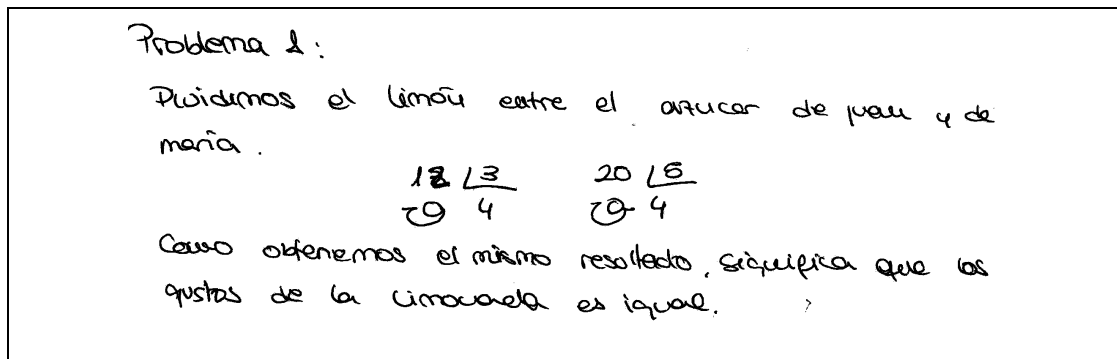 Problema 1:
Dividimos el limón entre el azucar de juan y de
maría.
12 3 20 5
0 4 0 4
Como obtenemos el mismo resultado, significa que los
gustos de la limonada es igual.